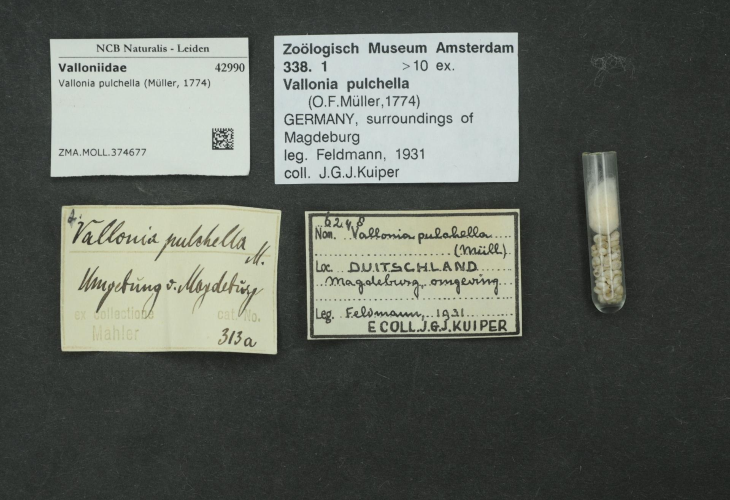 NCB Naturalis - Leiden
Valloniidae 42990
Vallonia pulchella (Müller, 1774)
ZMA.MOLL.374677
Zoölogisch Museum Amsterdam
338. 1 >10 ex.
Vallonia pulchella
(O.F.Müller,1774)
GERMANY, surroundings of
Magdeburg
leg. Feldmann, 1931
coll. J.G.J.Kuiper
Vallonia pulchella
M.
Umgebung v. Magdeburg
ex collectione cat. No.
Mahler
313a
6248
Nom. Vallonia pulchella
(Müll)
Loc. DUITSCHLAND
Magdeburg, omgeving
Leg. Feldmann, 1931
E COLL. J.G.J. KUIPER